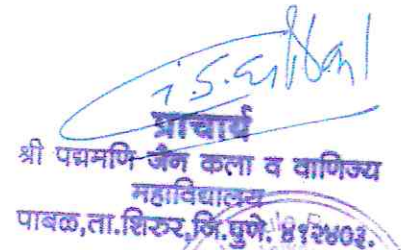 प्राचार्य
श्री पद्ममणि जैन कला व वाणिज्य
महाविद्यालय
पाबळ,ता.शिरुर,जि.पुणे. ४१२४०३